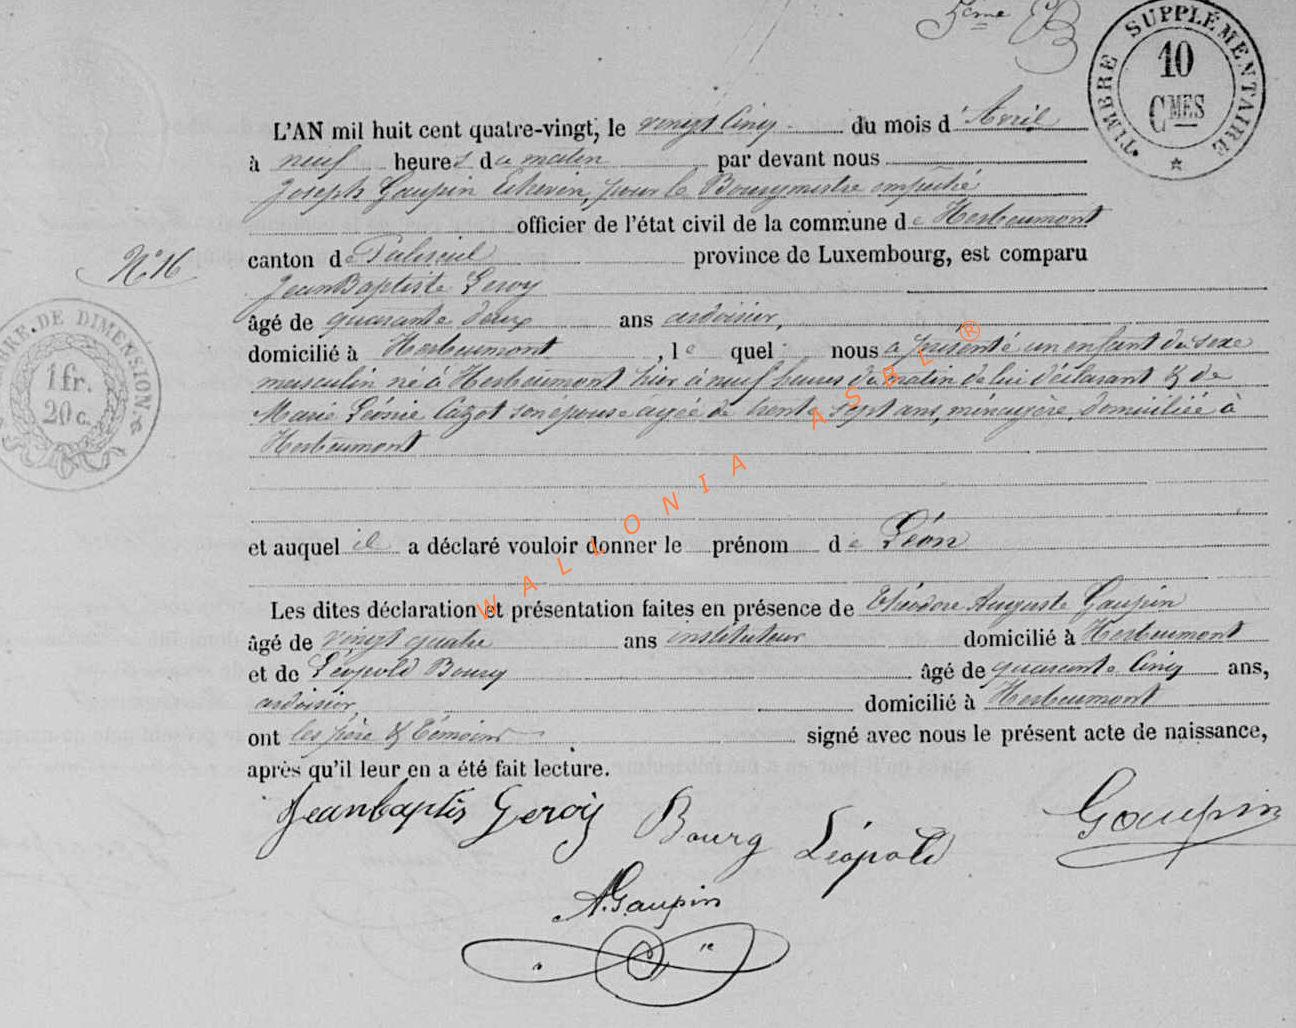 5eme B
TIMBRE SUPPLÉMENTAIRE
10
CMES
L'AN mil huit cent quatre-vingt, le vingt Cinq du mois d'Avril
à neuf heures du matin par devant nous
Joseph Gaupin Echevin, pour le Bourgmestre empêché
officier de l'état civil de la commune de Herbeumont
N° 16
canton de Paliseul province de Luxembourg, est comparu
Jean Baptiste Geroy
âgé de quarante deux ans ardoisier,
domicilié à Herbeumont, lequel nous a présenté un enfant du sexe
masculin né à Herbeumont hier à neuf heures du matin de lui déclarant & de
Marie Léonie Cazot son épouse âgée de trente sept ans, ménagère, domiciliée à
Herbeumont
TIMBRE DE DIMENSION
1 fr.
20 c.
et auquel il a déclaré vouloir donner le prénom de Léon
Les dites déclaration et présentation faites en présence de Théodore Auguste Gaupin
âgé de vingt quatre ans instituteur domicilié à Herbeumont
et de Léopold Bourg âgé de quarante Cinq ans,
ardoisier domicilié à Herbeumont
ont les père & témoins signé avec nous le présent acte de naissance,
après qu'il leur en a été fait lecture.
Jeanbaptis Geroiy Bourg Léopold Gaupin
A. Gaupin
WALLONIA ASBL ®